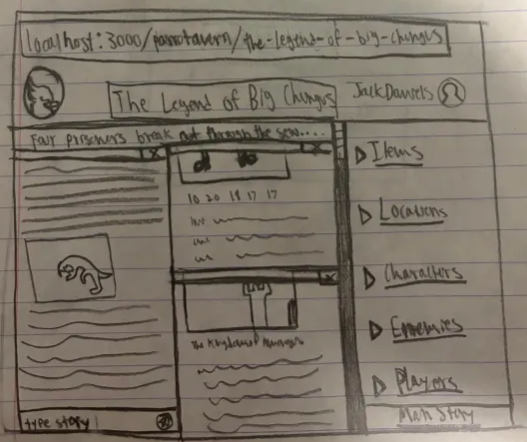 localhost:3000/parrotavern/the-legend-of-big-chungus
The Legend of Big Chungus
Jack Daniels
Four prisoners break out through the sew....
X
X
10 20 18 17 17
X
The Kingdom of
type story
Items
Locations
Characters
Enemies
Players
Main Story